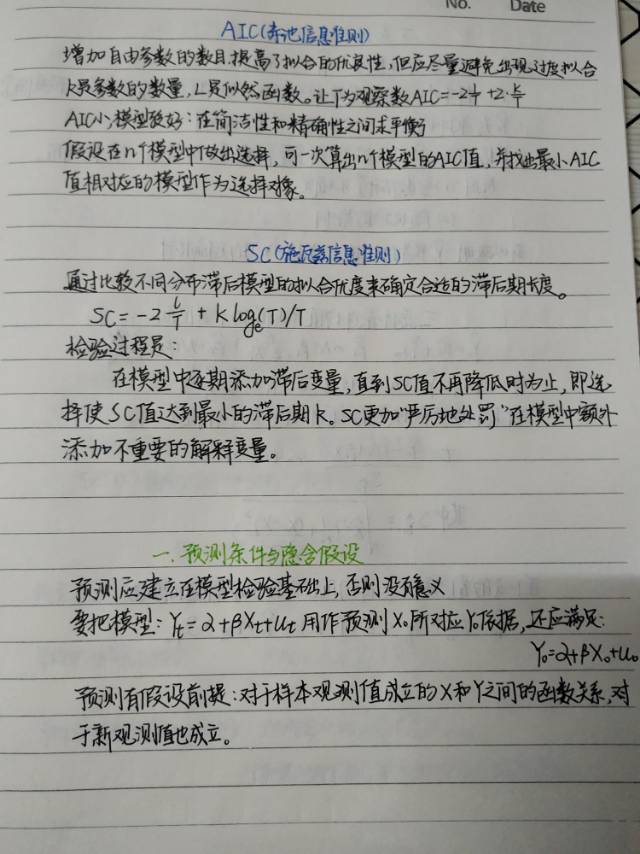 No. Date
AIC(赤池信息准则)
增加自由参数的数目提高了拟合的优良性,但应尽量避免出现过度拟合
K是参数的数量,L是似然函数。让T为观察数AIC=-2L/T+2·k/T
AIC小,模型较好:在简洁性和精确性之间求平衡
假设在n个模型中做出选择,可一次算出n个模型的AIC值,并找出最小AIC
值相对应的模型作为选择对像。
SC(施瓦茨信息准则)
通过比较不同分布滞后模型的拟合优度来确定合适的滞后期长度。
SC=-2L/T+Klogₑ(T)/T
检验过程是:
在模型中逐期添加滞后变量,直到SC值不再降低时为止,即选
择使SC值达到最小的滞后期k。SC更加“严厉地处罚”在模型中额外
添加不重要的解释变量。
一.预测条件与隐含假设
预测应建立在模型检验基础上,否则没有意义
要把模型:Yt=α+βXt+ut用作预测X₀所对应Y₀依据,还应满足:
Y₀=α+βX₀+u₀
预测有假设前提:对于样本观测值成立的X和Y之间的函数关系,对
于新观测值也成立。